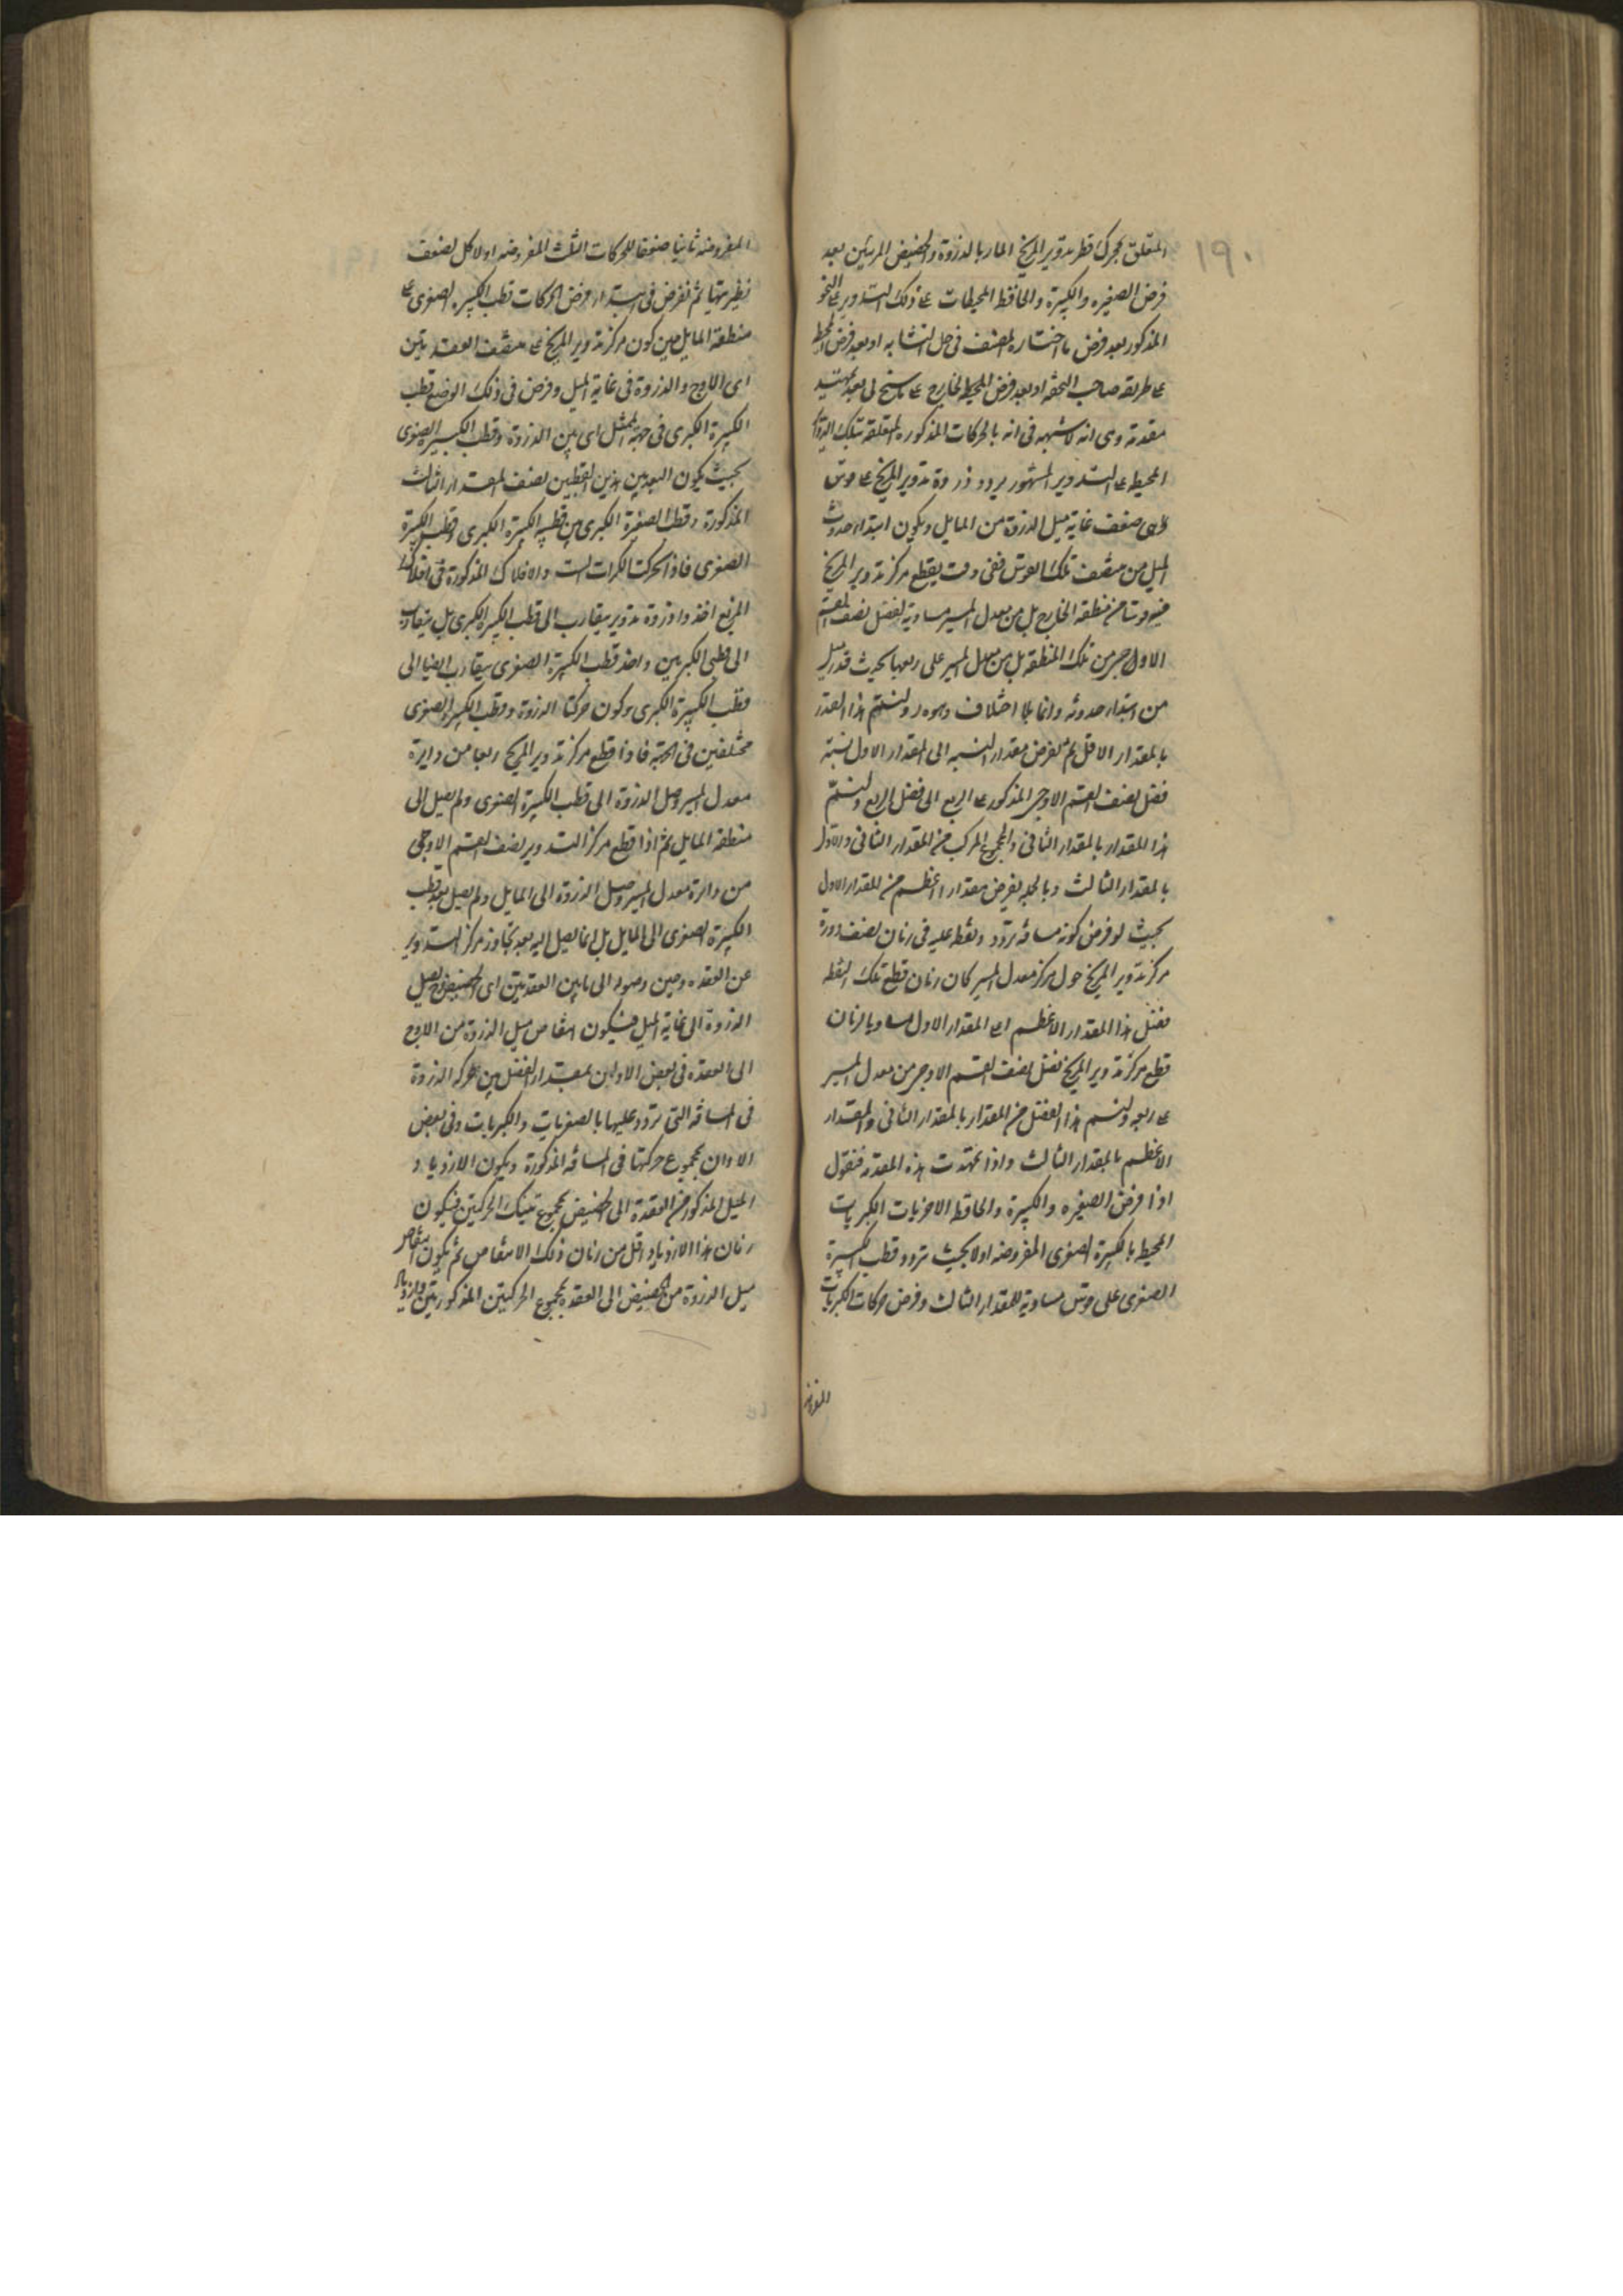 ١٩٠
المتعلق بحركة قطر تدوير المريخ المار بالذروة والحضيض المرئيين بعد
فرض الصغيره والكبيرة والحافظ المحيطات على ذلك التدوير على النحو
المذكور بعد فرض ما اختاره المصنف فى حل التشابه او بعد فرض المحيط
على طريقه صاحب التحفه او بعد فرض المحيط الخارج على ما سنح لى بعد تمهيد
مقدمة وهى انه لا شبهه فى انه بالحركات المذكوره المتعلقه بتلك
المحيط على التدوير المشهور يردد ذروة تدوير المريخ على قوس
هى ضعف غاية ميل الذروة من المايل ويكون ابتداء حدوث
الميل من منتصف تلك القوس ففى وقت يقطع مركز تدوير المريخ
فيه قوسا من منطقة الخارج بل من معدل المسير مساوية لفضل نصف القسم
الاوجى من تلك المنطقة بل من معدل المسير على ربعها بحيث قدر ميل
من ابتداء حدوثه وانما بلا اختلاف ولنسم هذا القدر
بالمقدار الاقل ثم نفرض مقدار النسبه الى المقدار الاول نسبة
فضل نصف القسم الاوجى المذكور على الربع الى فضل الربع ولنسم
هذا المقدار بالمقدار الثانى والمجموع المركب من المقدار الثانى والاول
بالمقدار الثالث وبالجمله نفرض مقدارا اعظم من المقدار الاول
بحيث لو فرض كونه مسافه تردد ونقطه عليه فى زمان نصف دورة
مركز تدوير المريخ حول مركز معدل المسير كان زمان قطع تلك النقطه
فضل هذا المقدار الاعظم على المقدار الاول مساويا لزمان
قطع مركز تدوير المريخ فضل نصف القسم الاوجى من معدل المسير
على ربعه ولنسم هذا الفضل من المقدار بالمقدار الثانى والمقدار
الاعظم بالمقدار الثالث واذا تمهدت هذه المقدمة فنقول
اذا فرض الصغيره والكبيرة والحافظه الاخريات الكبريات
المحيط بالكبيرة الصغرى المفروضه اولا بحيث تردد قطب الكبيرة
الصغرى على قوس مساوية للمقدار الثالث وفرض حركات الكبريات
المفروضه
المفروضه ثانيا ضعفا للحركات الثلث المفروضه اولا كل لضعف
نظيرتها ثم نفرض فى ابتداء فرض الحركات قطب الكبيره الصغرى على
منطقة المايل حين كون مركز تدوير المريخ على منتصف العقدتين
اى الاوج والذروة فى غاية الميل وفرض فى ذلك الوضع قطب
الكبيرة الكبرى فى جهة الممثل اى بين الذروة وقطب الكبيرة الصغرى
بحيث يكون البعد بين هذين القطبين نصف المقدار الثالث
المذكورة وقطب الصغيرة الكبرى بين قطبى الكبيرة الكبرى وقطب الكبيرة
الصغرى فاذا تحركت الكرات الست والافلاك المذكورة فى افلاك
المريخ اخذ ذروة تدوير يتقارب الى قطب الكبيره الكبرى بل يتقارب
الى قطبى الكبريين واخذ قطب الكبيرة الصغرى يتقارب ايضا الى
قطب الكبيرة الكبرى وكون حركتا الذروة وقطب الكبيرة الصغرى
مختلفين فى الجهة فاذا قطع مركز تدوير المريخ ربعا من دايرة
معدل المسير وصل الذروة الى قطب الكبيرة الصغرى ولم يصل الى
منطقة المايل ثم اذا قطع مركز التدوير نصف القسم الاوجى
من دايرة معدل المسير وصل الذروة الى المايل ولم يصل بعد قطب
الكبيرة الصغرى الى المايل بل انما يصل اليه بعد تجاوز مركز التدوير
عن العقده وحين وصوله الى ما بين العقدتين اى الحضيض وصل
الذروة الى غاية الميل فيكون انتقاص ميل الذروة من الاوج
الى العقده فى بعض الاوان بمقدار الفضل بين حركه الذروة
فى المسافه التى تردد عليها بالصغريات والكبريات وفى بعض
الاوان بمجموع حركتها فى المسافه المذكورة ويكون الازدياد
الميل المذكور من العقدة الى الحضيض بمجموع تينك الحركتين فيكون
زمان هذا الازدياد اقل من زمان ذلك الانتقاص ثم يكون انتقاص
ميل الذروة من الحضيض الى العقدة بمجموع الحركتين المذكورتين وازدياد